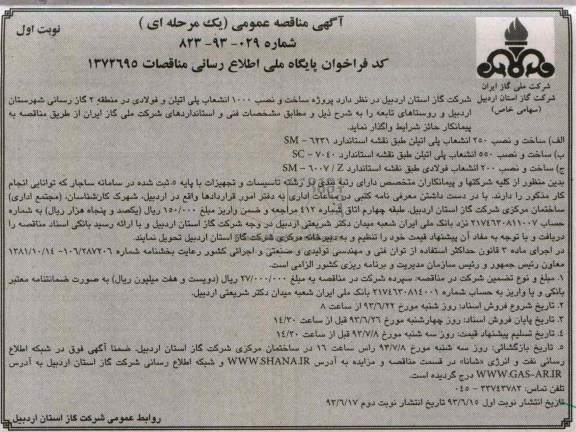 آگهی مناقصه عمومی (یک مرحله ای )
نوبت اول
شماره ۰۲۹- ۹۳- ۸۲۳
کد فراخوان پایگاه ملی اطلاع رسانی مناقصات ۱۳۷۲۶۹۵
شرکت ملی گاز ایران
شرکت گاز استان اردبیل
(سهامی خاص)
شرکت گاز استان اردبیل در نظر دارد پروژه ساخت و نصب ۱۰۰۰ انشعاب پلی اتیلن و فولادی در منطقه ۲ گاز رسانی شهرستان
اردبیل و روستاهای تابعه را به شرح ذیل و مطابق مشخصات فنی و استانداردهای شرکت ملی گاز ایران از طریق مناقصه به
پیمانکار حائز شرایط واگذار نماید.
الف) ساخت و نصب ۲۵۰ انشعاب پلی اتیلن طبق نقشه استاندارد ۶۲۳۱ – SM
ب) ساخت و نصب ۵۵۰ انشعاب پلی اتیلن طبق نقشه استاندارد ۷۰۴۰ – SC
ج) ساخت و نصب ۲۰۰ انشعاب فولادی طبق نقشه استاندارد SM – ۶۰۰۷ / Z
بدین منظور از کلیه شرکتها و پیمانکاران متخصص دارای رتبه رشته تاسیسات و تجهیزات با پایه ۵، ثبت شده در سامانه ساجار که توانایی انجام
کار مذکور را دارند. با در دست داشتن معرفی نامه کتبی در ساعات اداری به دفتر امور قراردادها واقع در اردبیل، شهرک کارشناسان، (مجتمع اداری)
ساختمان مرکزی شرکت گاز استان اردبیل، طبقه چهارم اتاق شماره ۴۱۲ مراجعه و ضمن واریز مبلغ ۱۵۰/۰۰۰ ریال (یکصد و پنجاه هزار ریال) به شماره
حساب ۲۱۷۴۶۳۰۸۱۱۰۰۷ نزد بانک ملی ایران شعبه میدان دکتر شریعتی اردبیل در وجه شرکت گاز استان اردبیل و با ارائه رسید بانکی اسناد مناقصه را
دریافت و با توجه به مفاد آن پیشنهاد قیمت خود را تنظیم و به دبیرخانه مرکزی شرکت گاز استان اردبیل تحویل نمایند.
در اجرای ماده ۳ قانون حداکثر استفاده از توان فنی و مهندسی تولیدی و صنعتی و اجرائی کشور رعایت بخشنامه شماره ۱۰۶/۲۸۷۲۰۶- ۱۳۸۱/۱۰/۱۴
معاون رئیس جمهور و رئیس سازمان مدیریت و برنامه ریزی کشور الزامی است.
۱. مبلغ و نوع تضمین شرکت در مناقصه: سپرده شرکت در مناقصه به مبلغ ۲۷/۰۰۰/۰۰۰ ریال (دویست و هفت میلیون ریال) به صورت ضمانتنامه معتبر
بانکی و یا واریز به حساب شماره ۲۱۷۴۶۳۰۸۱۴۰۰۱ بانک ملی ایران شعبه میدان دکتر شریعتی اردبیل.
۲. تاریخ شروع فروش اسناد: روز شنبه مورخ ۹۳/۶/۲۲ از ساعت ۸
۳. تاریخ پایان فروش اسناد: روز چهارشنبه مورخ ۹۳/۶/۲۶ قبل از ساعت ۱۴/۳۰
۴. تاریخ تسلیم پیشنهاد قیمت: روز سه شنبه مورخ ۹۳/۷/۸ قبل از ساعت ۱۴/۳۰
۵. تاریخ بازگشائی: روز سه شنبه مورخ ۹۳/۷/۸ راس ساعت ۱۶ در ساختمان مرکزی شرکت گاز استان اردبیل. ضمنا آگهی فوق در شبکه اطلاع
رسانی نفت و انرژی «شانا» در قسمت مناقصه و مزایده به آدرس WWW.SHANA.IR و شبکه اطلاع رسانی شرکت گاز استان اردبیل به آدرس
WWW.GAS-AR.IR درج گردیده است.
تلفن تماس: ۳۳۷۴۳۷۸۲ - ۰۴۵
تاریخ انتشار نوبت اول ۹۳/۶/۱۵ تاریخ انتشار نوبت دوم ۹۳/۶/۱۷
روابط عمومی شرکت گاز استان اردبیل